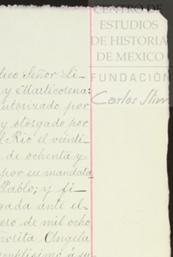 CENTRO DE
ESTUDIOS
DE HISTORIA
DE MEXICO
FUNDACIÓN
Carlos Slim
Señor Li-
y Marticorena:
autorizado por
y otorgado por
Rio el veinti-
de ochenta y
por su mandato
Pablo; y fi-
gada ante el
ero de mil ocho
Angela